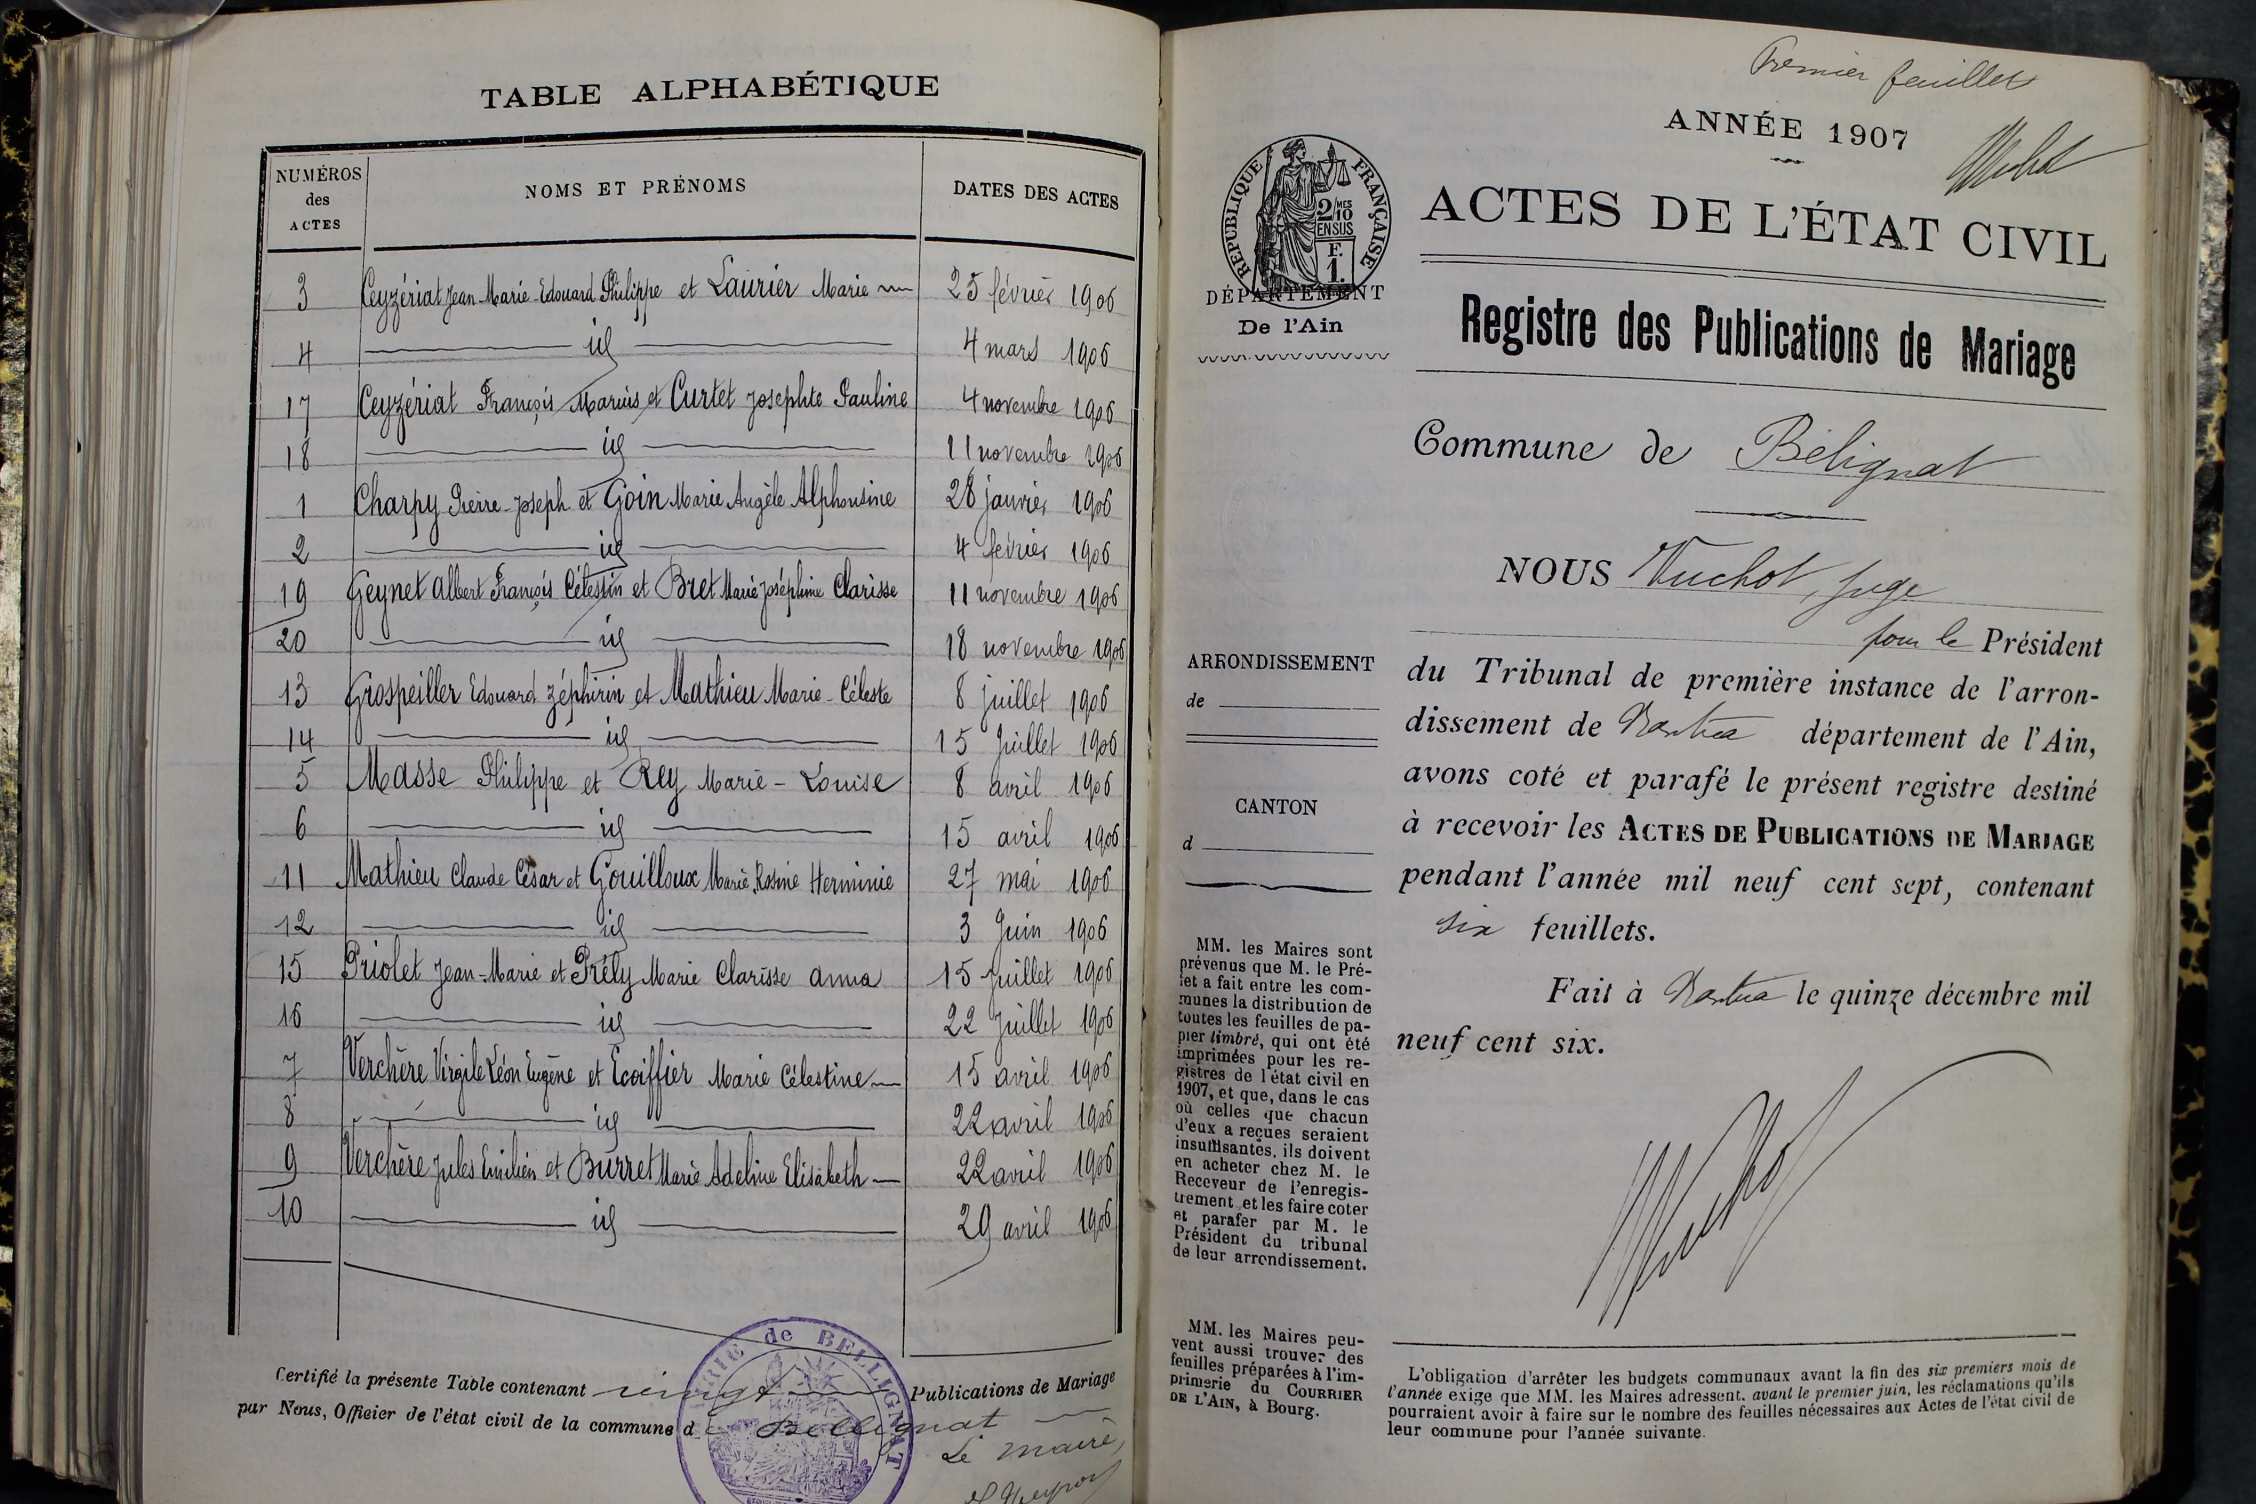 TABLE ALPHABÉTIQUE
NUMÉROS des ACTES | NOMS ET PRÉNOMS | DATES DES ACTES
3 Ceyzériat Jean-Marie-Edouard Philippe et Laurier Marie 25 février 1906
4 id 4 mars 1906
17 Ceyzériat François Marius et Curtet Josephte Pauline 4 novembre 1906
18 id 11 novembre 1906
1 Charpy Pierre-Joseph et Goin Marie Angèle Alphonsine 28 janvier 1906
2 id 4 février 1906
19 Geynet Albert François Célestin et Bret Marie Joséphine Clarisse 11 novembre 1906
20 id 18 novembre 1906
13 Grospeiller Edouard Zéphirin et Mathieu Marie-Céleste 8 juillet 1906
14 id 15 Juillet 1906
5 Masse Philippe et Rey Marie-Louise 8 avril 1906
6 id 15 avril 1906
11 Mathieu Claude César et Gouilloux Marie Rosine Herminie 27 mai 1906
12 id 3 Juin 1906
15 Priolet Jean-Marie et Prély Marie Clarisse Anna 15 Juillet 1906
16 id 22 Juillet 1906
7 Verchère Virgile Léon Eugène et Ecoiffier Marie Célestine 15 avril 1906
8 id 22 avril 1906
9 Verchère Jules Emilien et Burret Marie Adeline Elisabeth 22 avril 1906
10 id 29 avril 1906
Certifié la présente Table contenant vingt Publications de Mariage
par Nous, Officier de l'état civil de la commune d Bellignat
Le maire,
MAIRIE de BELLIGNAT
Premier feuillet
ANNÉE 1907
Vuchot
ACTES DE L'ÉTAT CIVIL
RÉPUBLIQUE FRANÇAISE
2/10 MES
EN SUS
F.
1.
DÉPARTEMENT
De l'Ain
Registre des Publications de Mariage
Commune de Bélignat
NOUS Vuchot, juge
pour le Président
du Tribunal de première instance de l'arron-
dissement de Nantua département de l'Ain,
avons coté et parafé le présent registre destiné
à recevoir les ACTES DE PUBLICATIONS DE MARIAGE
pendant l'année mil neuf cent sept, contenant
six feuillets.
Fait à Nantua le quinze décembre mil
neuf cent six.
Vuchot
ARRONDISSEMENT
de
CANTON
d
MM. les Maires sont
prévenus que M. le Pré-
fet a fait entre les com-
munes la distribution de
toutes les feuilles de pa-
pier timbré, qui ont été
imprimées pour les re-
gistres de l'état civil en
1907, et que, dans le cas
où celles que chacun
d'eux a reçues seraient
insuffisantes, ils doivent
en acheter chez M. le
Receveur de l'enregis-
trement et les faire coter
et parafer par M. le
Président du tribunal
de leur arrondissement.
MM. les Maires peu-
vent aussi trouver des
feuilles préparées à l'im-
primerie du COURRIER
DE L'AIN, à Bourg.
L'obligation d'arrêter les budgets communaux avant la fin des six premiers mois de
l'année exige que MM. les Maires adressent, avant le premier juin, les réclamations qu'ils
pourraient avoir à faire sur le nombre des feuilles nécessaires aux Actes de l'état civil de
leur commune pour l'année suivante.